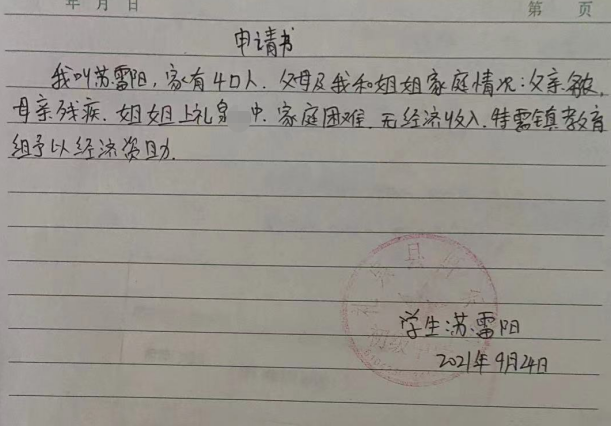 年 月 日
第 页
申请书
我叫苏雷阳,家有4口人.父母及我和姐姐家庭情况:父亲
母亲残疾.姐姐上礼泉 中.家庭困难.无经济收入.特需镇教育
组予以经济资助.
县
初级
学生:苏雷阳
2021年9月24日